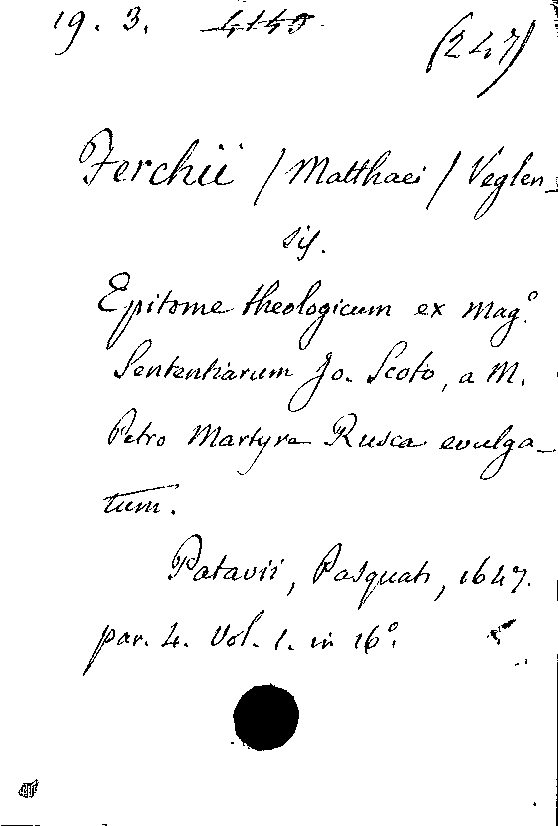 19. 3. 4140 (247)
Ferchii / Matthaei / Veglen_
sis.
Epitome theologicum ex Mag.º
Sententiarum Jo. Scoto, a M.
Petro Martyre Rusca evulga_
tum.
Patavii, Pasquati, 1647.
par. 4. Vol. 1. in 16º.